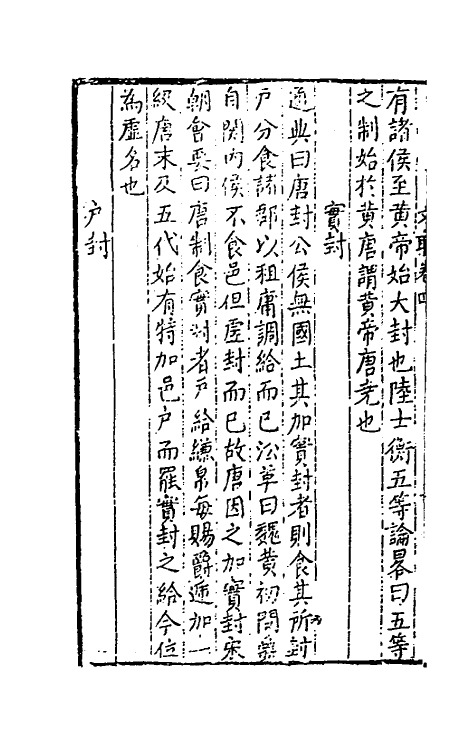 有諸侯至黄帝始大封也陸士衡五等論畧曰五等
之制始於黄唐謂黄帝唐堯也
實封
通典曰唐封公侯無國土其加實封者則食其所封
戸分食諸郡以租庸調給而已沿革曰魏黄初間爵
自関内侯不食邑但虛封而已故唐因之加實封宋
朝會要曰唐制食實封者戸給縑帛每賜爵遞加一
級唐末及五代始有特加邑戸而罷實封之給今位
為虛名也
戸封